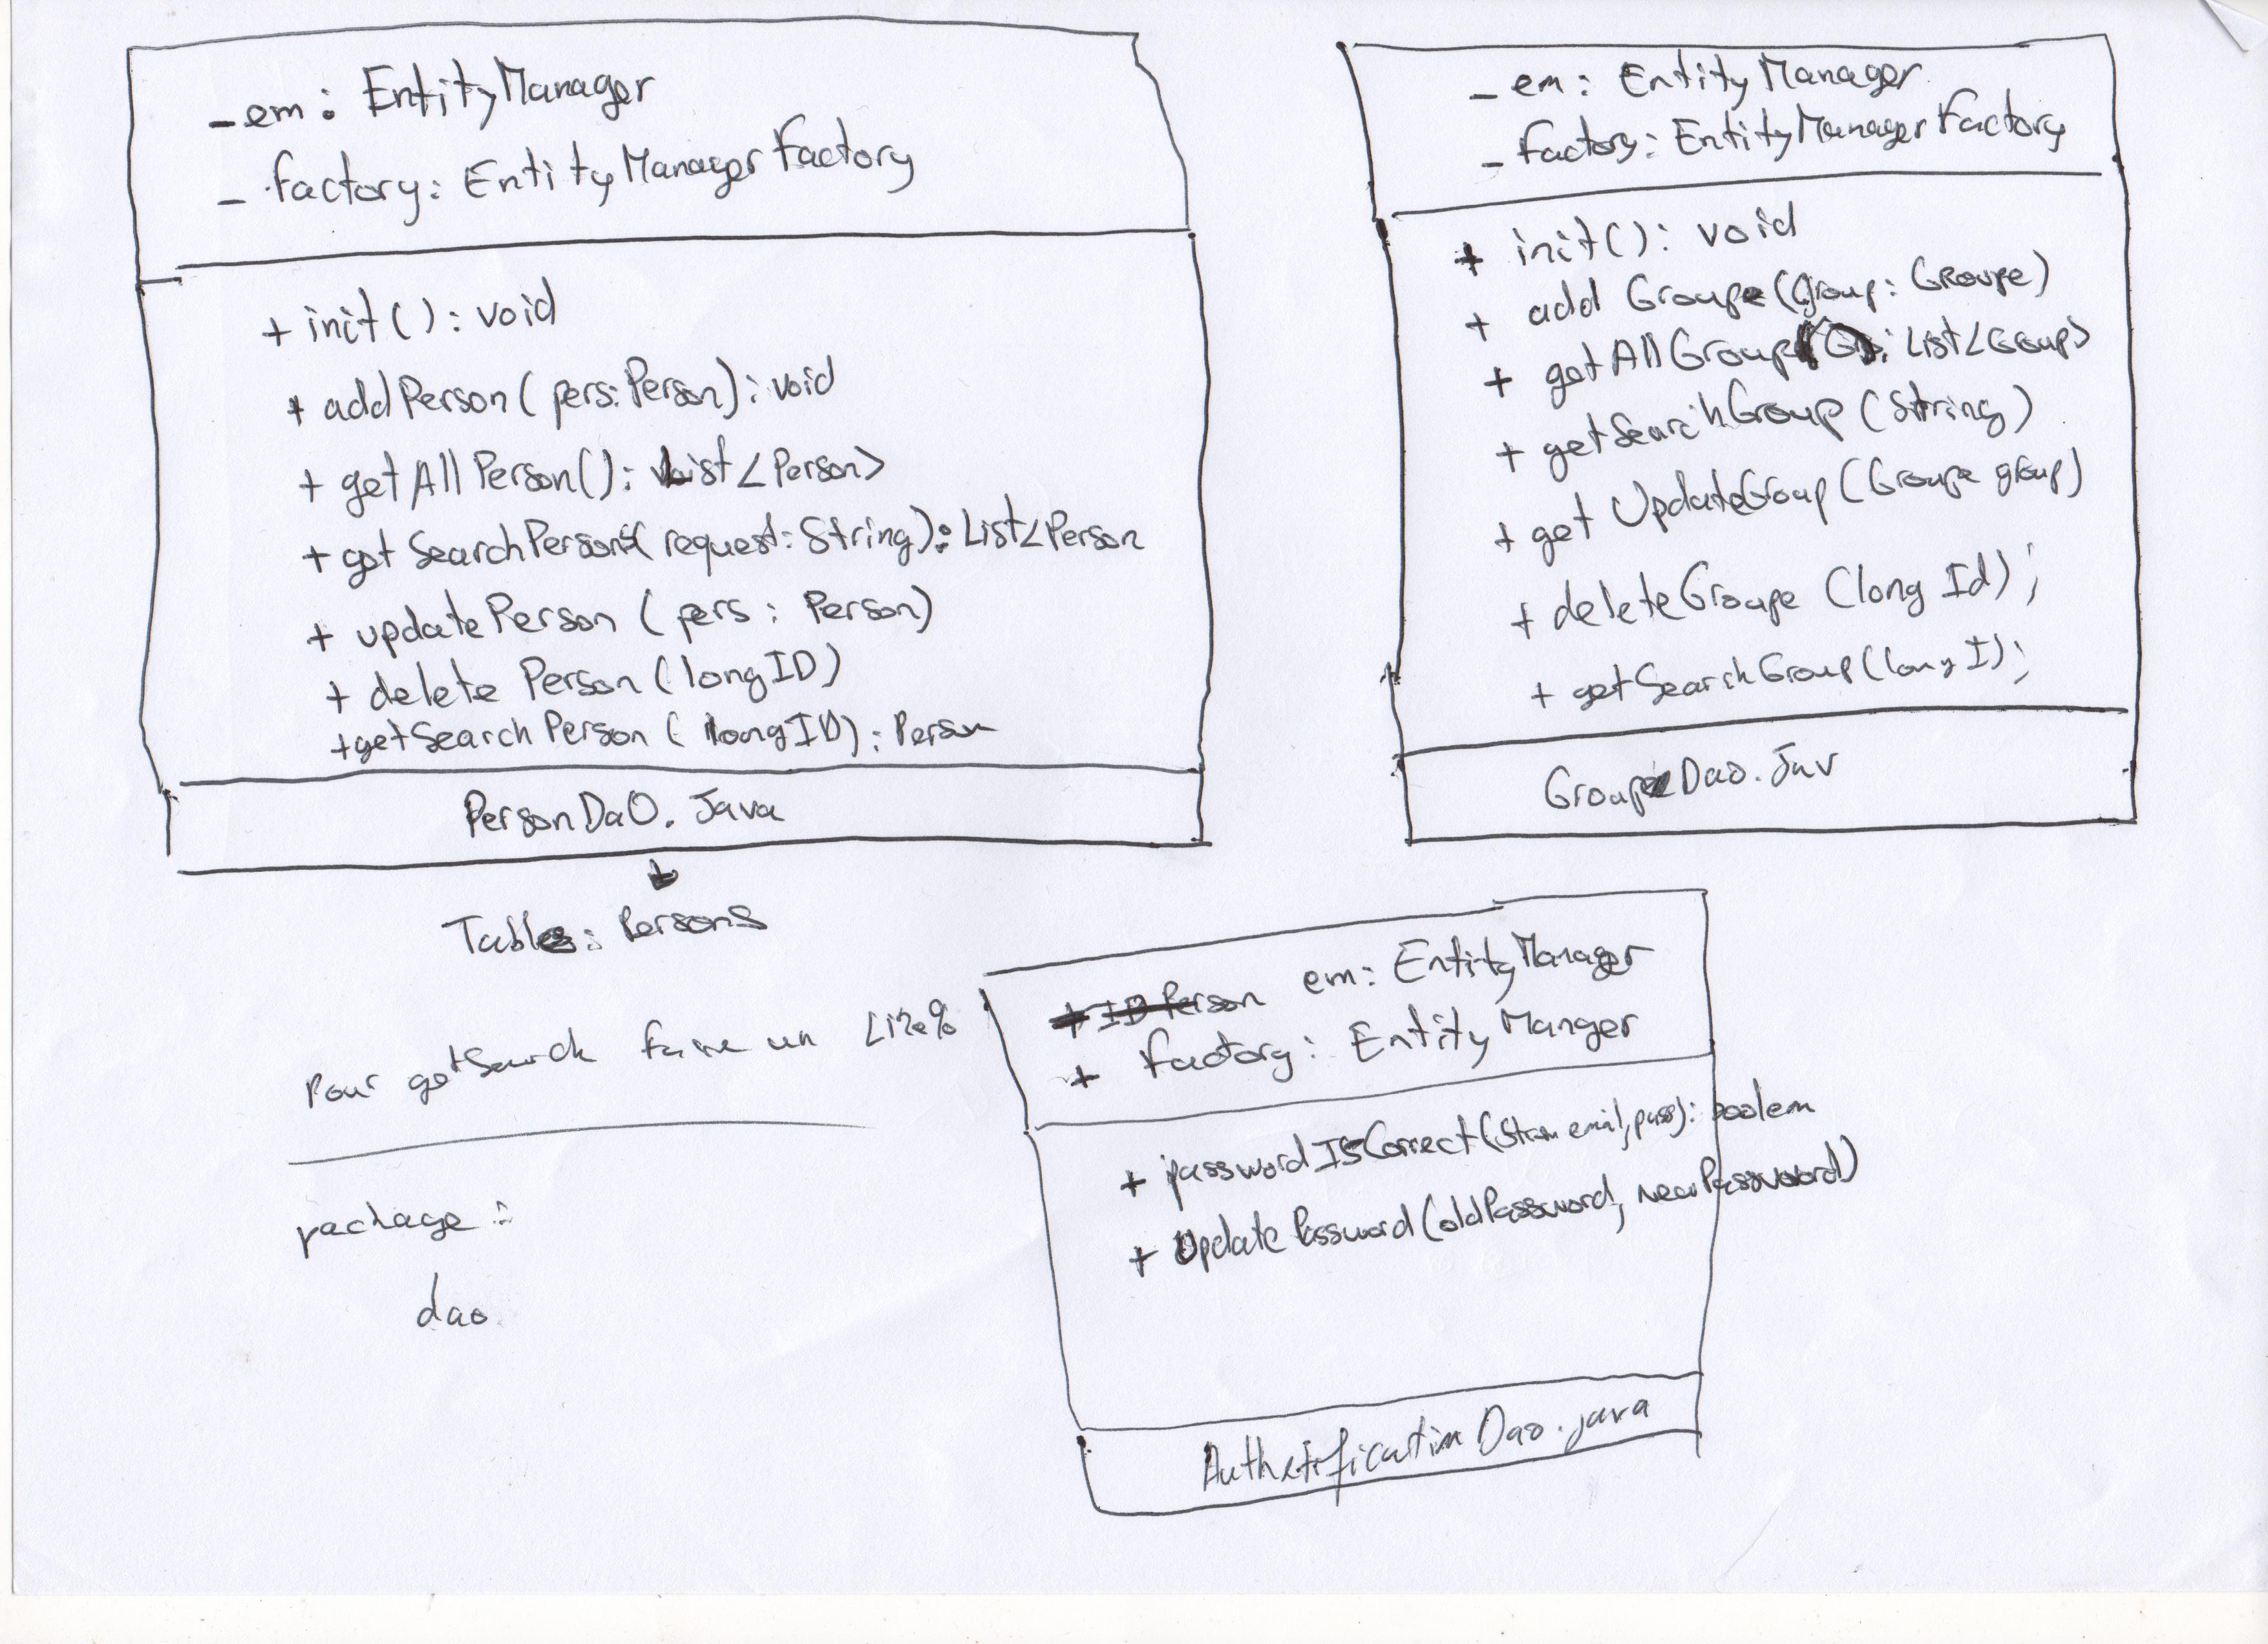 - em : EntityManager
- factory : EntityManagerFactory
+ init ( ) : void
+ addPerson ( pers : Person) : void
+ getAllPerson() : List<Person>
+ get SearchPersons( request : String) : List<Person
+ updatePerson ( pers : Person)
+ delete Person ( long ID)
+ getSearch Person ( long ID) : Person
PersonDaO. Java
Table : Persons
Pour getSearch faire un Like%
package :
dao
- em : EntityManager
- factory : EntityManagerFactory
+ init() : void
+ add Groupe (group : Groupe)
+ getAllGroup : List<Group>
+ getSearchGroup (String)
+ get UpdateGroup (Groupe group)
+ deleteGroupe (long Id) ;
+ getSearchGroup (long I) ;
Group Dao. Jav
+ ID Person em : EntityManager
+ factory : EntityManger
+ passwordISCorrect( email, pass) : boolem
+ Update Password (oldPassword, newPassword)
AuthetificationDao.java